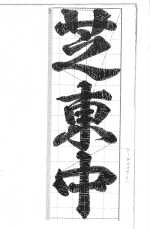 芝東中